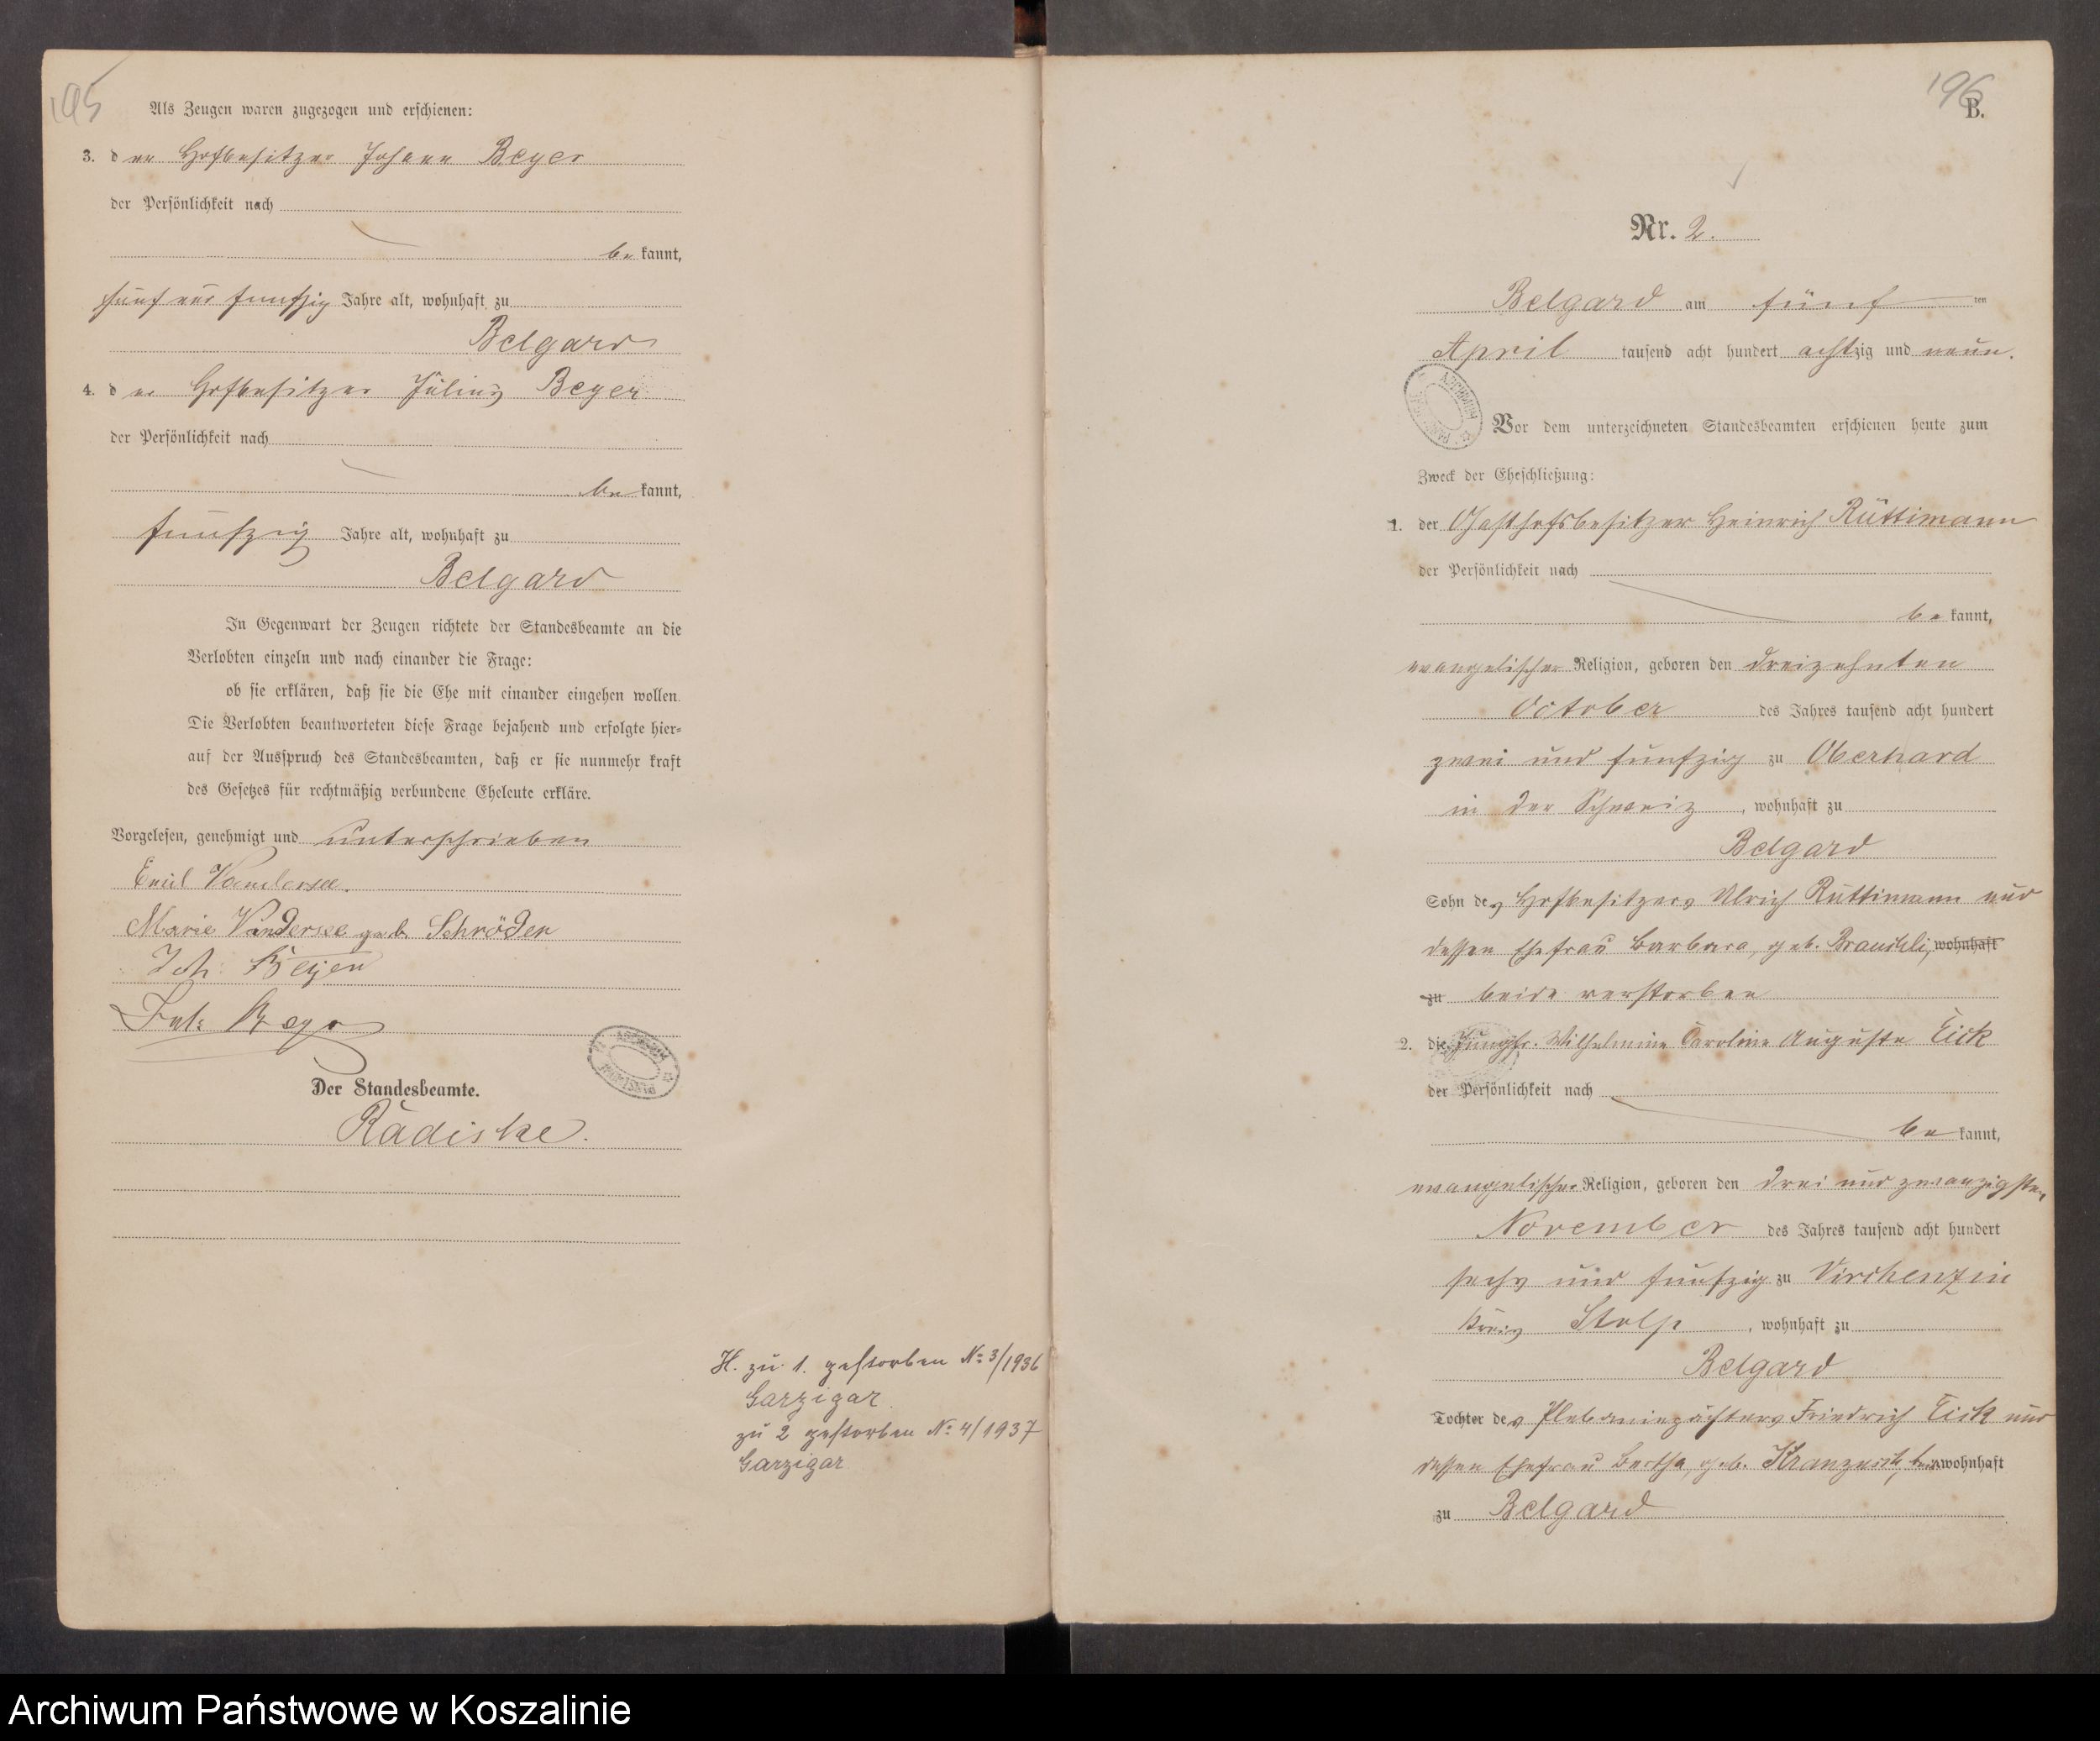 195
Als Zeugen waren zugezogen und erschienen:
3. der Hofbesitzer Johann Beyer
der Persönlichkeit nach
be kannt,
fünf und funfzig Jahre alt, wohnhaft zu
Belgard
4. der Hofbesitzer Julius Beyer
der Persönlichkeit nach
be kannt,
funfzig Jahre alt, wohnhaft zu
Belgard
In Gegenwart der Zeugen richtete der Standesbeamte an die
Verlobten einzeln und nach einander die Frage:
ob sie erklären, daß sie die Ehe mit einander eingehen wollen.
Die Verlobten beantworteten diese Frage bejahend und erfolgte hier-
auf der Ausspruch des Standesbeamten, daß er sie nunmehr kraft
des Gesetzes für rechtmäßig verbundene Eheleute erkläre.
Vorgelesen, genehmigt und unterschrieben
Emil Vandersee.
Marie Vandersee geb. Schröder
Joh: Beyer
Jul: Beyer
Der Standesbeamte.
Radiske.
H. zu 1. gestorben No 3/1936
Garzigar
zu 2 gestorben No 4/1937
Garzigar
196
B.
Nr. 2.
Belgard am fünf ten
April tausend acht hundert achtzig und neun.
Vor dem unterzeichneten Standesbeamten erschienen heute zum
Zweck der Eheschließung:
1. der Gasthofsbesitzer Heinrich Rüttimann
der Persönlichkeit nach
be kannt,
evangelischer Religion, geboren den dreizehnten
October des Jahres tausend acht hundert
zwei und funfzig zu Oberhard
in der Schweiz, wohnhaft zu
Belgard
Sohn des Hofbesitzers Ulrich Rüttimann und
dessen Ehefrau Barbara, geb. Brauchli, wohnhaft
zu beide verstorben
2. die Jungfr. Wilhelmine Caroline Auguste Eick
der Persönlichkeit nach
be kannt,
evangelischer Religion, geboren den drei und zwanzigsten
November des Jahres tausend acht hundert
sechs und funfzig zu Virchenzin
Kreis Stolp, wohnhaft zu
Belgard
Tochter des Friedrich Eick und
dessen Ehefrau Bertha, geb. wohnhaft
zu Belgard
Archiwum Państwowe w Koszalinie